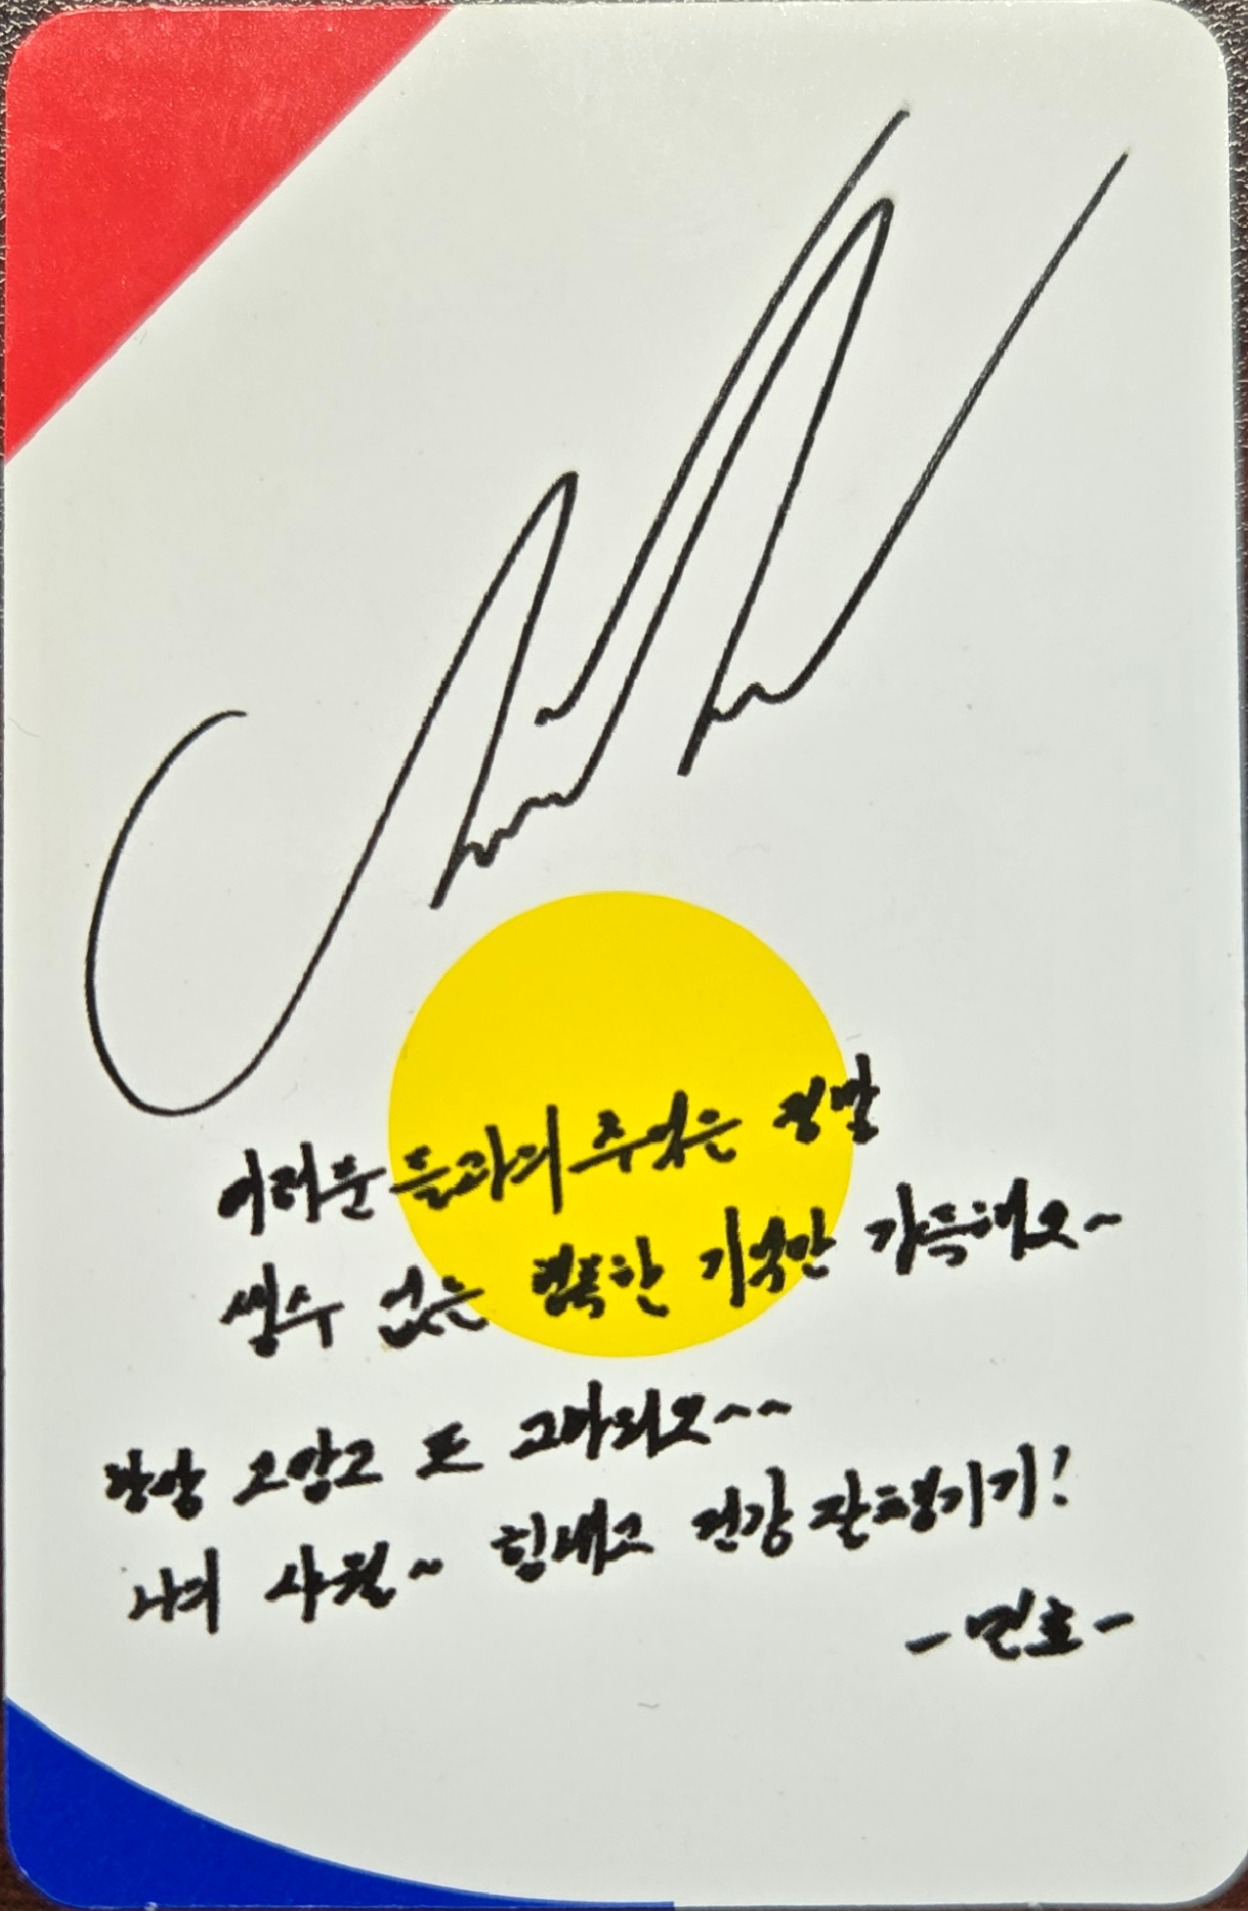 여러분들과의 추억은 정말
셀수 없는 행복한 기억만 가득해요~
항상 고맙고 또 고마워요~~
나의 사월~ 힘내고 건강 잘챙기기!
-민호-